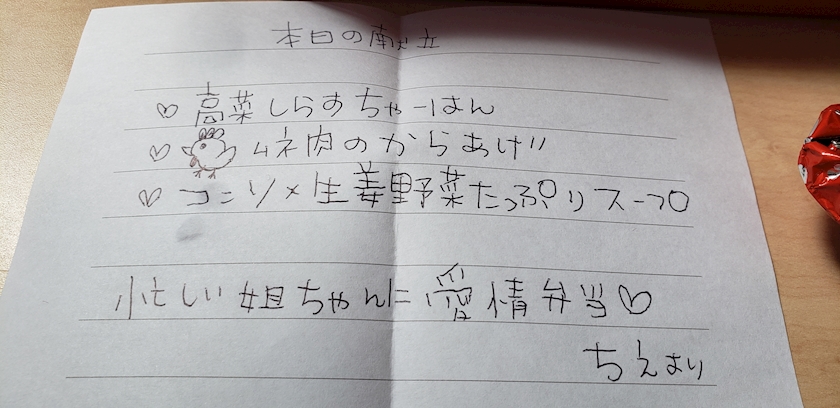 本日の献立
♡ 高菜しらすちゃーはん
♡ ムネ肉のからあげ!!
♡ コンソメ生姜野菜たっぷりスープ
忙しい姐ちゃんに愛情弁当♡
ちえより